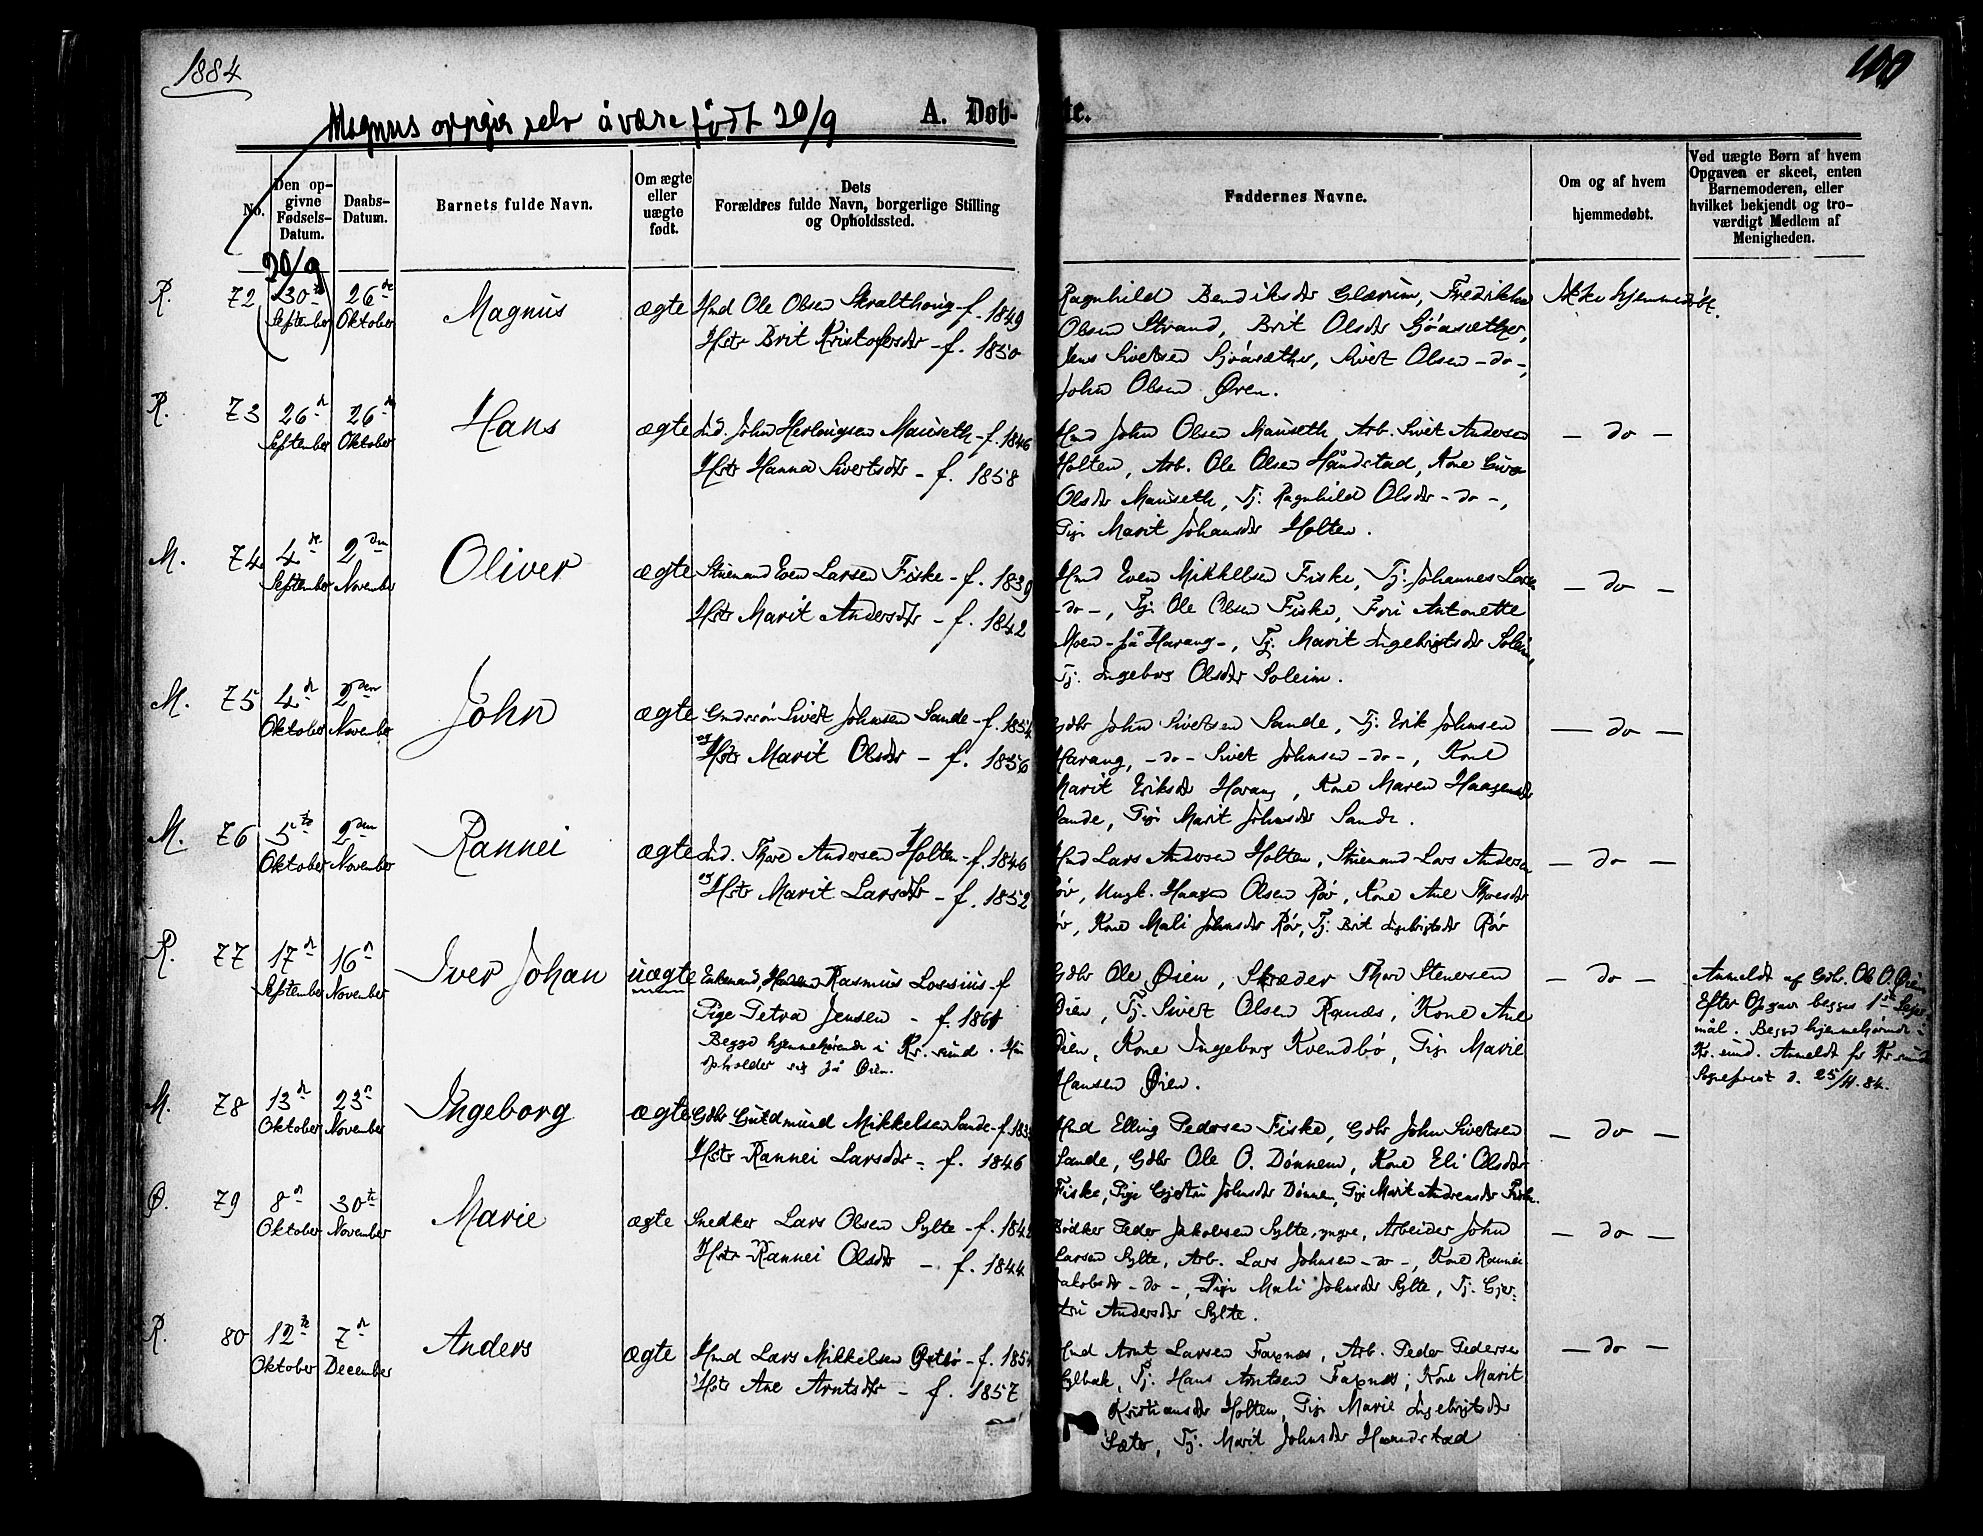 1884
100
Magnus oppgir selv å være født 20/9
A. Døb-
te.
No.
Den op-
givne
Fødsels-
Datum.
Daabs-
Datum.
Barnets fulde Navn.
Om ægte
eller
uægte
født.
Dets
Forældres fulde Navn, borgerlige Stilling
og Opholdssted.
Faddernes Navne.
Om og af hvem
hjemmedøbt.
Ved uægte Børn af hvem
Opgaven er skeet, enten
Barnemoderen, eller
hvilket bekjendt og tro-
værdigt Medlem af
Menigheden.
20/9
R. 72 30te September 26de Oktober Magnus ægte Hmd Ole Olsen Skralthoug - f. 1849
Hstr Brit Kristofersdtr - f. 1850
Ragnhild Bendiksdtr Glærum, Fredrikke
Olsen Strand, Brit Olsdtr Sjöasæther,
Jens Sivertsen Sjöasæther, Sivert Olsen - do -,
John Olsen Øren.
Ikke hjemmedøbt.
R. 73 26de September 26de Oktober Hans ægte Ind. John Herlougsen Mauseth - f. 1846
Hstr Hanna Sivertsdtr - f. 1858
Hmd John Olsen Mauseth, Arb. Sivert Andersen
Holten, Arb. Ole Olsen Håndstad, Kone Guro
Olsdtr Mauseth, Tj. Ragnhild Olsdtr - do -,
Pige Marit Johansdtr Holten.
- do -
M. 74 4de September 2den November Oliver ægte Stuemand Even Larsen Fiske - f. 1839
Hstr Marit Andersdtr - f. 1842
Hmd Even Mikkelsen Fiske, Tj. Johannes Larsen
- do -, Tj. Ole Olsen Fiske, Frøi Antonette
Moen - på Harang -, Tj. Marit Ingebrigtsdtr Soleim,
Tj. Ingeborg Olsdtr Soleim.
- do -
M. 75 4de Oktober 2den November John ægte Gmdssøn Sivert Johnsen Sande - f. 1854
og Hstr Marit Olsdtr - f. 1856
Gdbr John Sivertsen Sande, Tj. Erik Johnsen
Harang, - do - Sivert Johnsen - do -, Kone
Marit Eriksdtr Harang, Kone Maren Haagensdtr
Sande, Pige Marit Johnsdtr Sande.
- do -
M. 76 5te Oktober 2den November Rannei ægte Ind. Thore Andersen Holten - f. 1846
og Hstr Marit Larsdtr - f. 1852
Hmd Lars Andersen Holten, Stuemand Lars Andersen
Rør, Ungk. Haagen Olsen Rør, Kone Ane Thoresdtr
Rør, Kone Mali Johnsdtr Rør, Tj. Brit Ingebrigtsdtr Rør
- do -
R. 77 17de September 16de November Iver Johan uægte Enkemand, Rasmus Lossius - f
Pige Petra Jensen - f. 1861
Begge hjemmehørende i Kr.sund. Hun
opholder sig på Øien.
Gdbr Ole Øien, Skræder Thore Stenersen
Øien, Tj. Sivert Olsen Ranæs, Kone Ane
Øien, Kone Ingeborg Kvendbø, Pige Marie
Hansen Øien.
- do -
Anmeldt af Gdbr. Ole O. Øien
Efter Opgave begges 1ste Leier-
mål. Begge hjemmehørende i
Kr.sund. Anmeldt for Kr.sunds
Sogneprest d. 25/11. 84.
M. 78 13de Oktober 23de November Ingeborg ægte Gdbr Gudmund Mikkelsen Sande - f. 183
Hstr Rannei Larsdtr - f. 1846
Hmd Elling Pedersen Fiske, Gdbr John Sivertsen
Sande, Gdbr Ole O. Dønnem, Kone Eli Olsdtr
Fiske, Pige Gjertru Johnsdtr Dønnem, Pige Marit Andreasdtr Fiske.
- do -
Ø. 79 8de Oktober 30te November Marie ægte Snedker Lars Olsen Sylte - f. 184
Hstr Rannei Olsdtr - f. 1844
Bødker Peder Jakobsen Sylte, yngre, Arbeider John
Larsen Sylte, Arb. Lars Johnsen - do -, Kone Rannei
Jakobsdtr - do -, Pige Mali Johnsdtr Sylte, Tj. Gjer-
tru Andersdtr Sylte.
- do -
R. 80 12te Oktober 7de December Anders ægte Hmd Lars Mikkelsen Østbø - f. 185
Hstr Ane Arntsdtr - f. 1857
Hmd Arnt Larsen Faxnæs, Arb. Peder Pedersen
Sylbak, Tj. Hans Arntsen Faxnæs, Kone Marit
Kristiansdtr Holten, Pige Marie Ingebrigtsdtr
Sæter, Tj. Marit Johnsdtr Haandstad
- do -